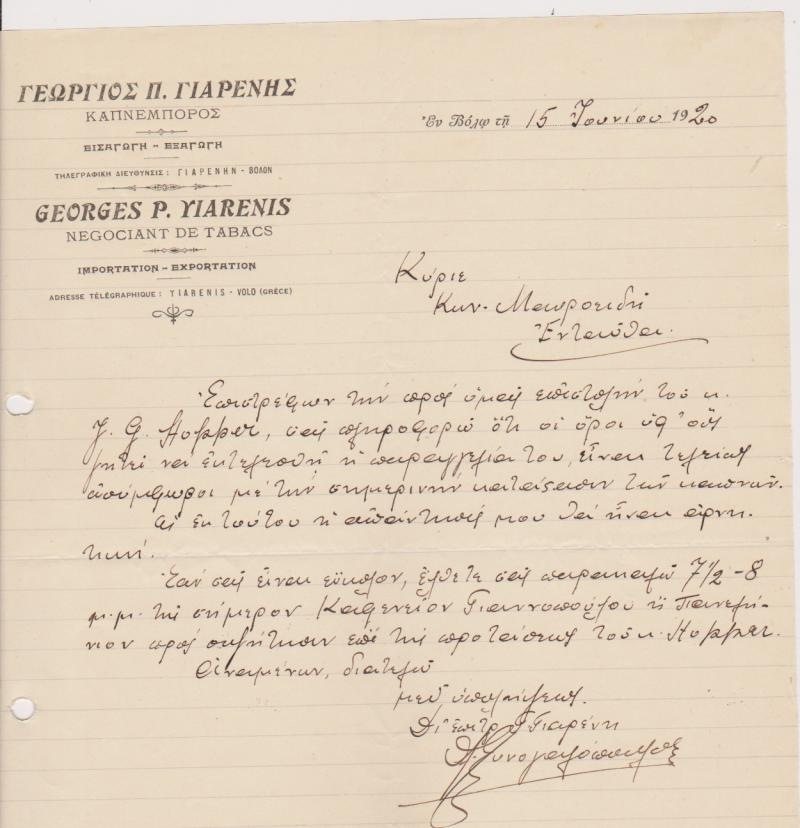 ΓΕΩΡΓΙΟΣ Π. ΓΙΑΡΕΝΗΣ
ΚΑΠΝΕΜΠΟΡΟΣ
ΕΙΣΑΓΩΓΗ - ΕΞΑΓΩΓΗ
ΤΗΛΕΓΡΑΦΙΚΗ ΔΙΕΥΘΥΝΣΙΣ: ΓΙΑΡΕΝΗΝ - ΒΟΛΟΝ
GEORGES P. YIARENIS
NEGOCIANT DE TABACS
IMPORTATION - EXPORTATION
ADRESSE TÉLÉGRAPHIQUE: YIARENIS - VOLO (GRÈCE)
Ἐν Βόλῳ τῇ 15 Ἰουνίου 1920
Κύριε
Κων. Μαυροειδῆ
Ἐνταῦθα.
Ἐπιστρέφων τὴν πρὸς ὑμᾶς ἐπιστολὴν τοῦ κ.
J. G. Hopper, σᾶς πληροφορῶ ὅτι οἱ ὅροι ὑφ' οὓς
ζητεῖ νὰ ἐκτελεσθῇ ἡ παραγγελία του, εἶναι τελείως
ἀσύμφοροι μὲ τὴν σημερινὴν κατάστασιν τῶν καπνῶν.
Ὡς ἐκ τούτου ἡ ἀπάντησίς μου θὰ εἶναι ἀρνη-
τική.
Ἐὰν σᾶς εἶναι εὔκολον, ἔλθετε σᾶς παρακαλῶ 7 1/2 - 8
μ.μ. τῆς σήμερον Καφενεῖον Γιαννοπούλου ἢ Πανελλή-
νιον πρὸς συζήτησιν ἐπὶ τῆς προτάσεως τοῦ κ. Hopper.
Ἀναμένων, διατελῶ
μεθ' ὑπολήψεως.
Γιαρένη